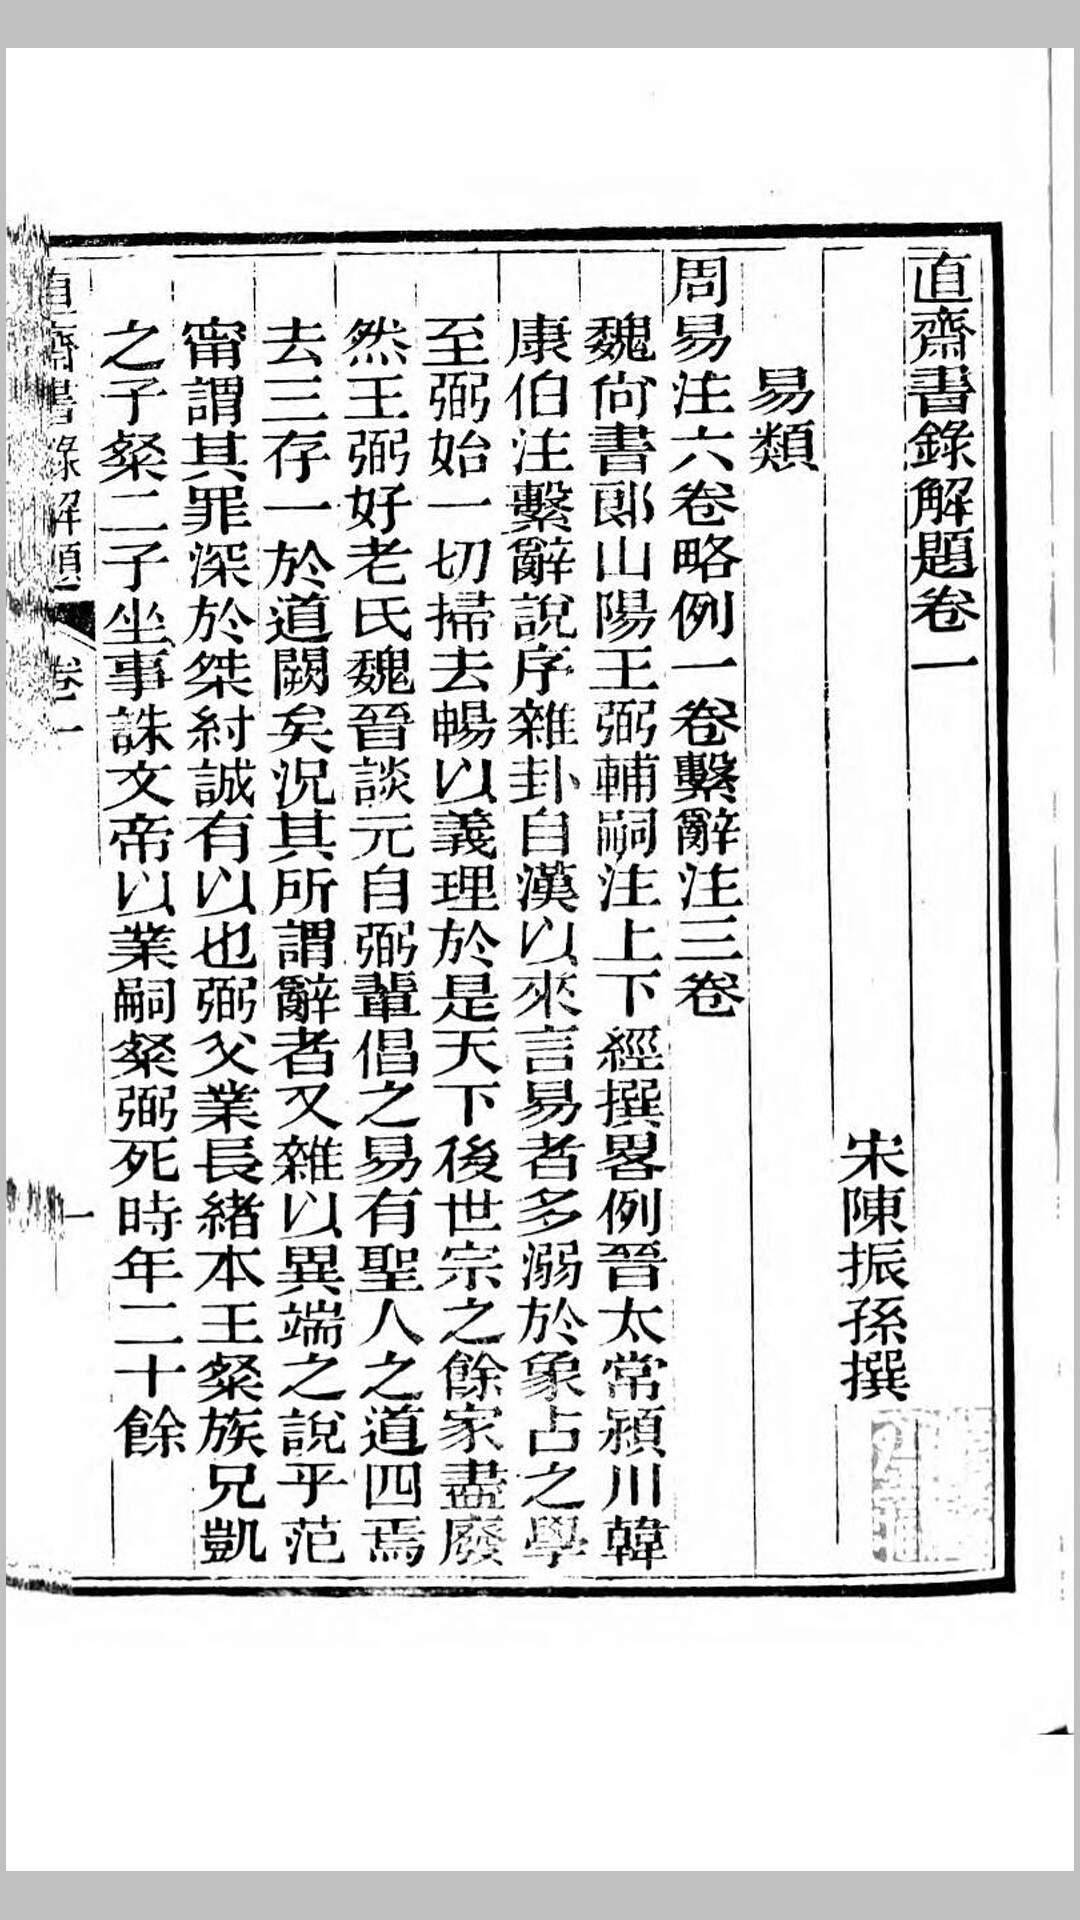 直齋書錄解題卷一
宋陳振孫撰
易類
周易注六卷略例一卷繫辭注三卷
魏尙書郞山陽王弼輔嗣注上下經撰畧例晉太常潁川韓
康伯注繫辭說序雜卦自漢以來言易者多溺於象占之學
至弼始一切掃去暢以義理於是天下後世宗之餘家盡廢
然王弼好老氏魏晉談元自弼輩倡之易有聖人之道四焉
去三存一於道闕矣況其所謂辭者又雜以異端之說乎范
甯謂其罪深於桀紂誠有以也弼父業長緒本王粲族兄凱
之子粲二子坐事誅文帝以業嗣粲弼死時年二十餘
直齋書錄解題 卷一 一